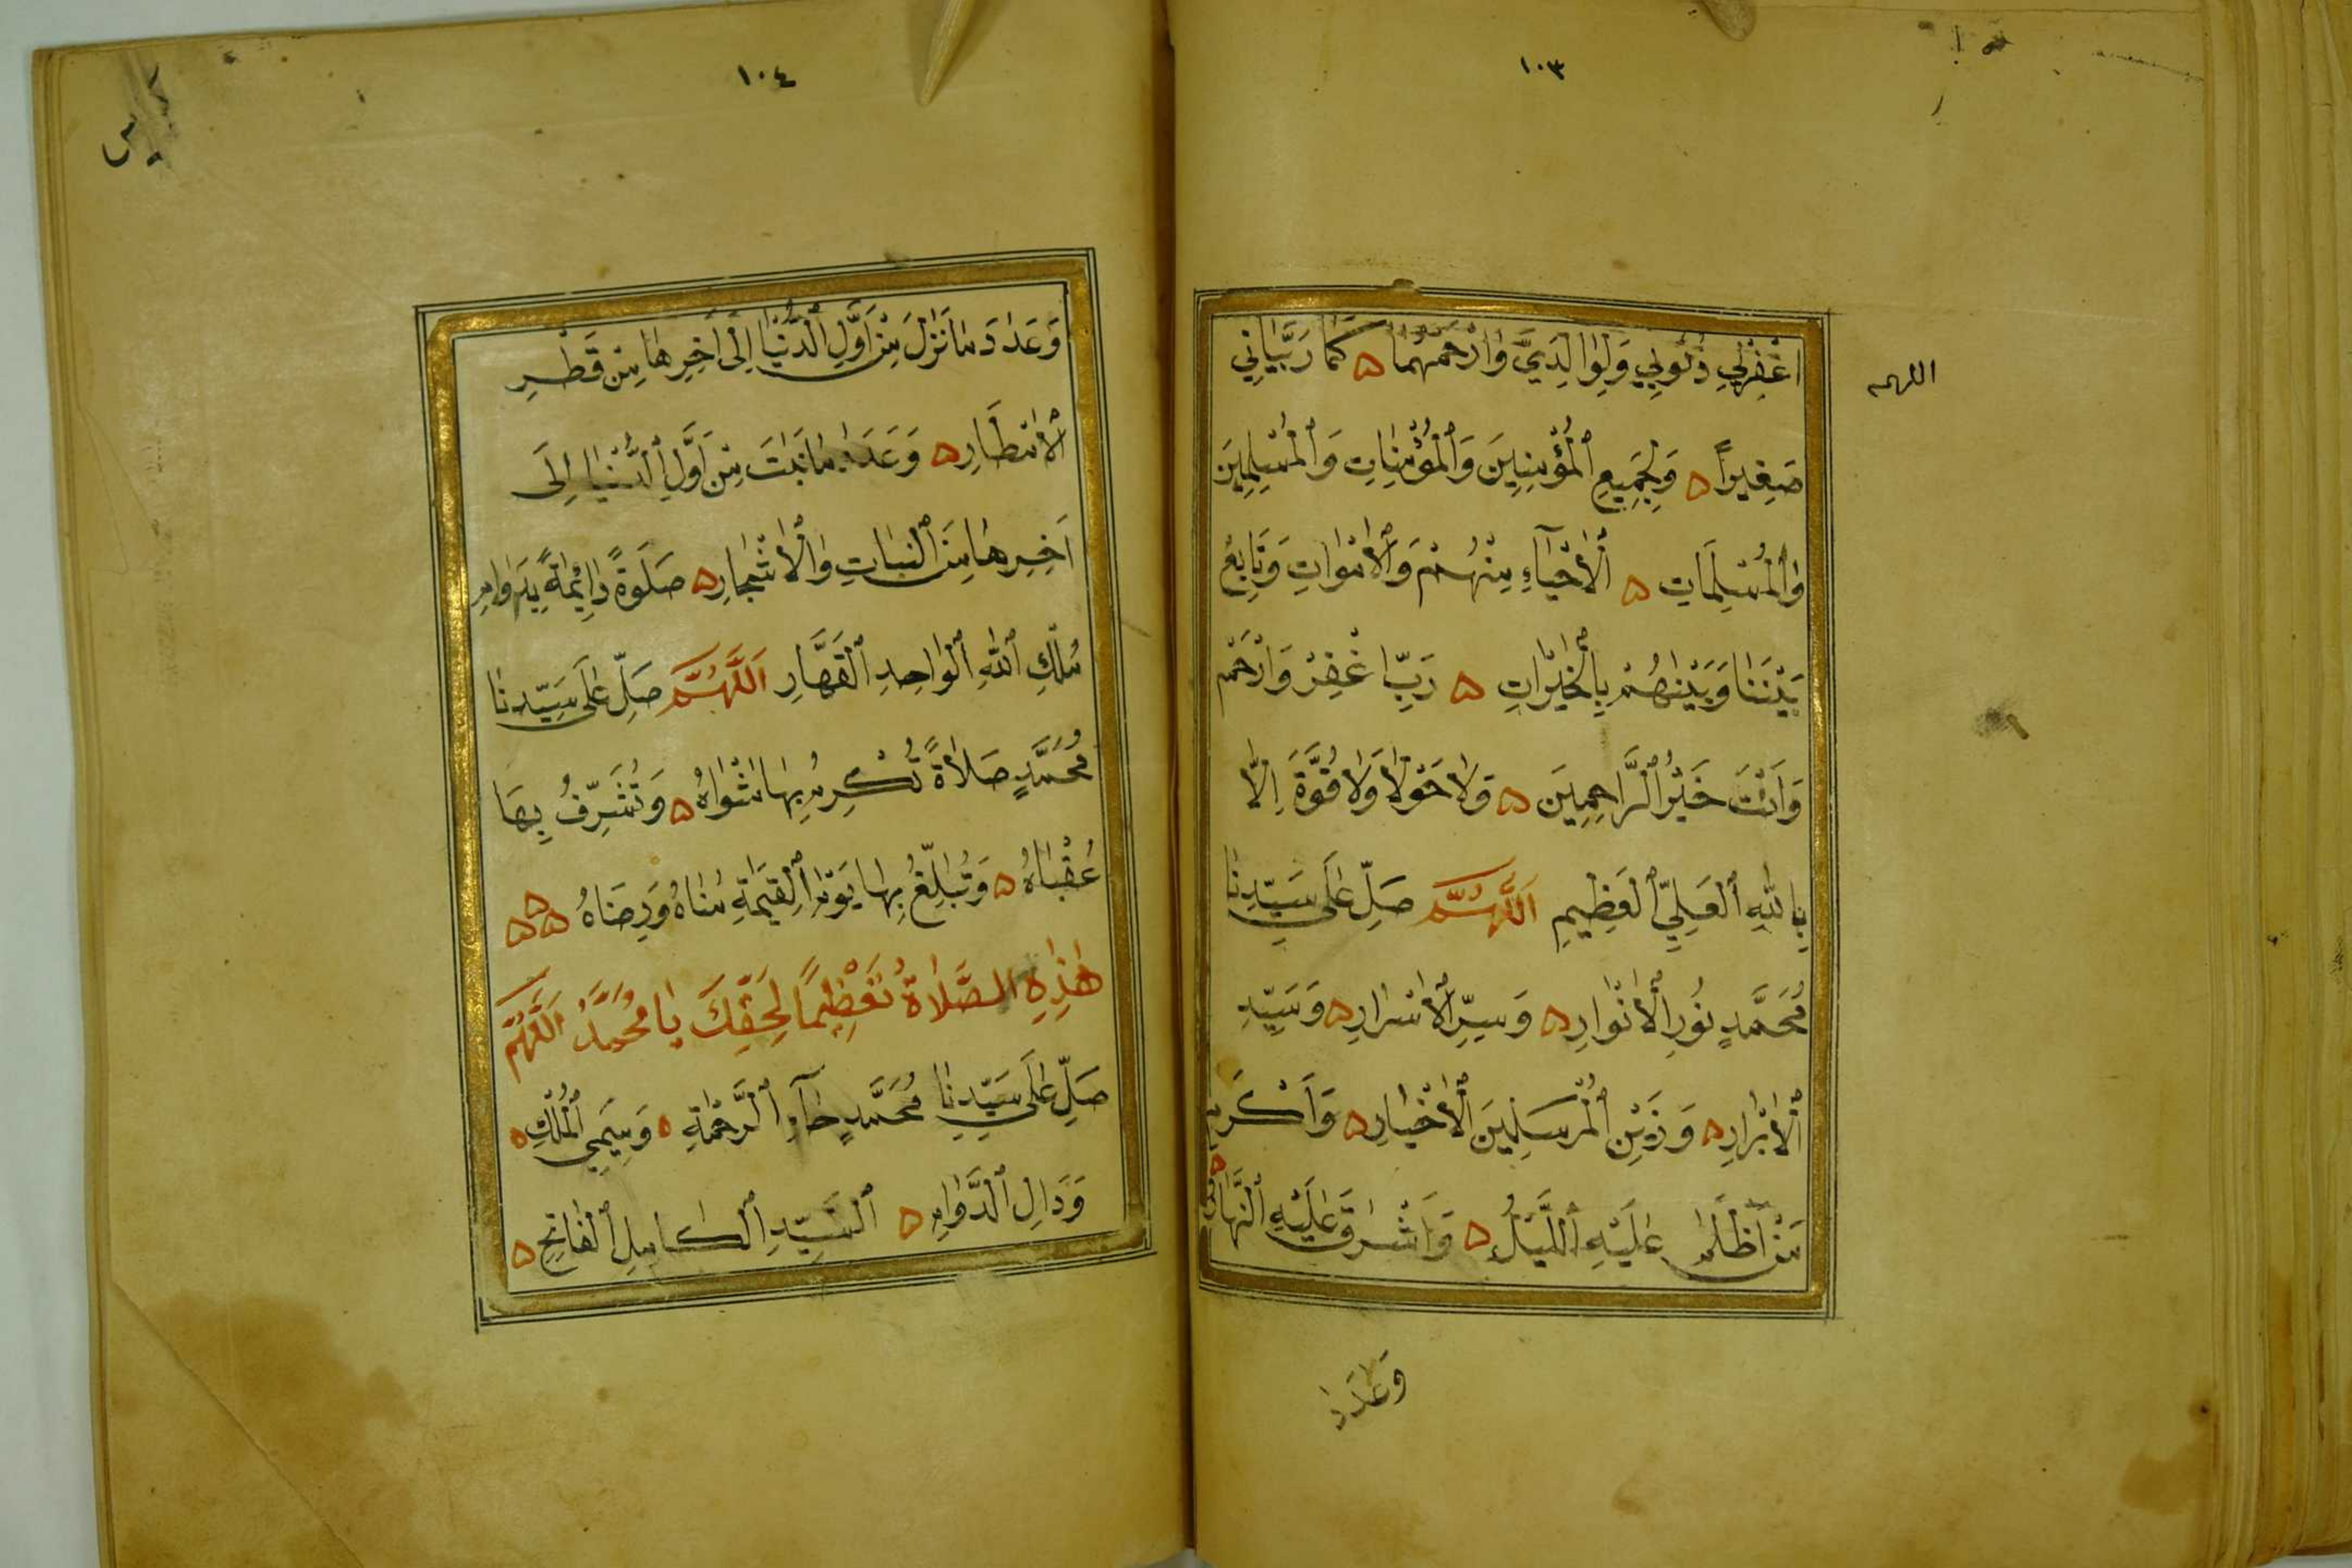 ١٠٣
اللهم
اغْفِرْلِي ذُنُوبِي وَلِوَالِدَيَّ وَارْحَمْهُمَا ۵ كَمَا رَبَّيَانِي
صَغِيراً ۵ وَلِجَمِيعِ الْمُؤْمِنِينَ وَالْمُؤْمِنَاتِ وَالْمُسْلِمِينَ
وَالْمُسْلِمَاتِ ۵ الْأَحْيَآءِ مِنْهُمْ وَالْأَمْوَاتِ وَتَابِعْ
بَيْنَنَا وَبَيْنَهُمْ بِالْخَيْرَاتِ ۵ رَبِّ اغْفِرْ وَارْحَمْ
وَأَنْتَ خَيْرُ الرَّاحِمِينَ ۵ وَلَا حَوْلَ وَلَا قُوَّةَ اِلَّا
بِاللهِ الْعَلِيِّ الْعَظِيمِ اَللَّهُمَّ صَلِّ عَلَى سَيِّدِنَا
مُحَمَّدٍ نُورِ الْأَنْوَارِ ۵ وَسِرِّ الْأَسْرَارِ ۵ وَسَيِّدِ
الْأَبْرَارِ ۵ وَزَيْنِ الْمُرْسَلِينَ الْأَخْيَارِ ۵ وَأَكْرَمِ
مَنْ أَظْلَمَ عَلَيْهِ اللَّيْلُ ۵ وَأَشْرَقَ عَلَيْهِ النَّهَارُ ۵
وَعَدَدَ
١٠٤
وَعَدَدَ مَا نَزَلَ مِنْ أَوَّلِ الدُّنْيَا إِلَى آخِرِهَا مِنْ قَطْرِ
الْأَمْطَارِ ۵ وَعَدَدَ مَا نَبَتَ مِنْ أَوَّلِ الدُّنْيَا إِلَى
آخِرِهَا مِنَ النَّبَاتِ وَالْأَشْجَارِ ۵ صَلَوةً دَائِمَةً بِدَوَامِ
مُلْكِ اللهِ الْوَاحِدِ الْقَهَّارِ اَللَّهُمَّ صَلِّ عَلَى سَيِّدِنَا
مُحَمَّدٍ صَلَاةً تُكْرِمُ بِهَا مَثْوَاهُ ۵ وَتُشَرِّفُ بِهَا
عُقْبَاهُ ۵ وَتُبَلِّغُ بِهَا يَوْمَ الْقِيَمَةِ مُنَاهُ وَرِضَاهُ ۵۵۵
هَذِهِ الصَّلَاةُ تَعْظِيمًا لِحَقِّكَ يَا مُحَمَّدُ اَللَّهُمَّ
صَلِّ عَلَى سَيِّدِنَا مُحَمَّدٍ حَآءِ الرَّحْمَةِ ۵ وَمِيمَيِ الْمُلْكِ ۵
وَدَالِ الدَّوَامِ ۵ السَّيِّدِ الْكَامِلِ الْفَاتِحِ ۵